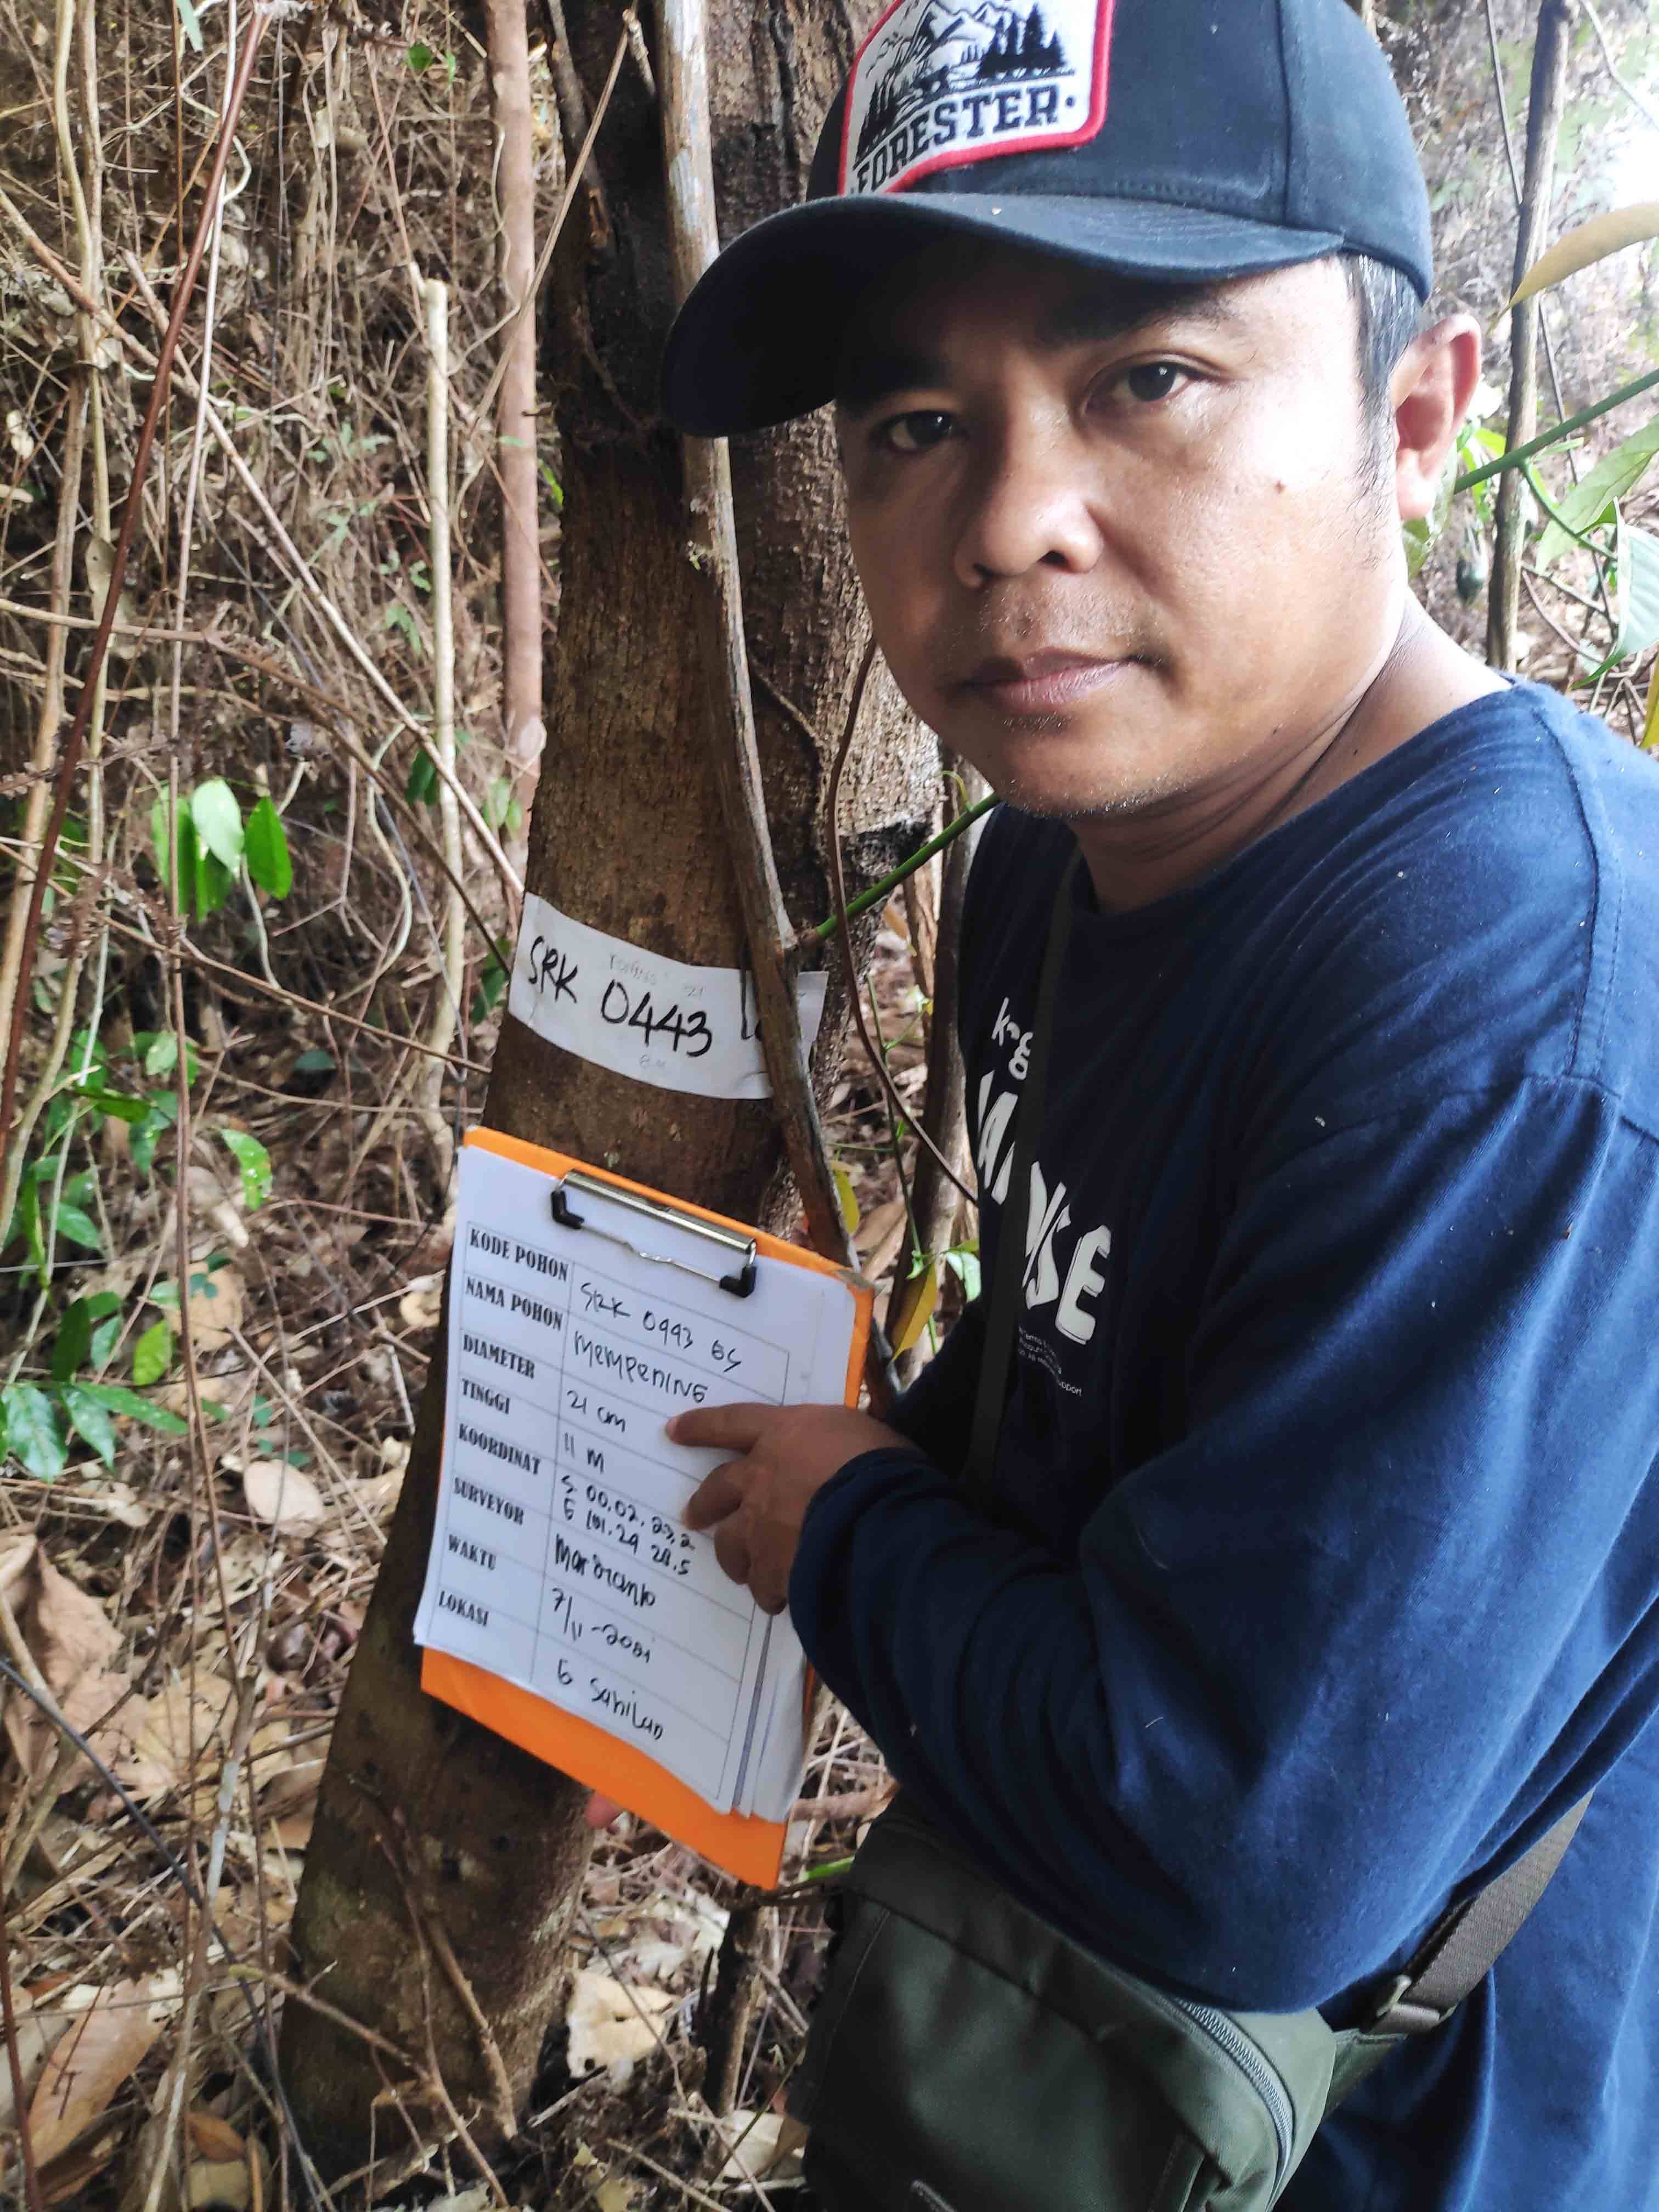 FORESTER
SRK 0443
KODE POHON SRK 0443 BS
NAMA POHON MEMPENING
DIAMETER 21 cm
TINGGI 11 M
KOORDINAT S 00.02.23,2
E 101.29 28.5
SURVEYOR
WAKTU 7/11-2021
LOKASI G Sahilan